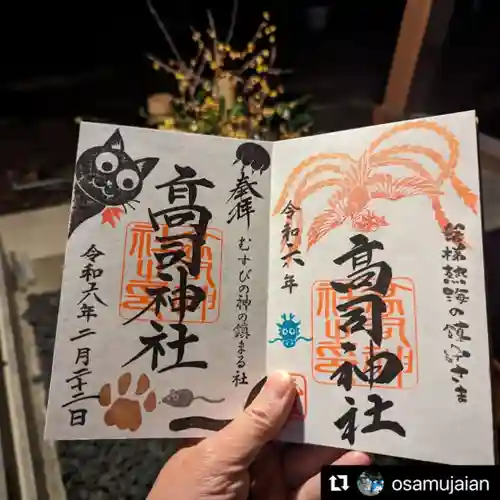 奉拝
むすびの神の鎮まる社
高司神社
令和六年二月二十二日
熱海の
高司神社
令和六年
osamujaian